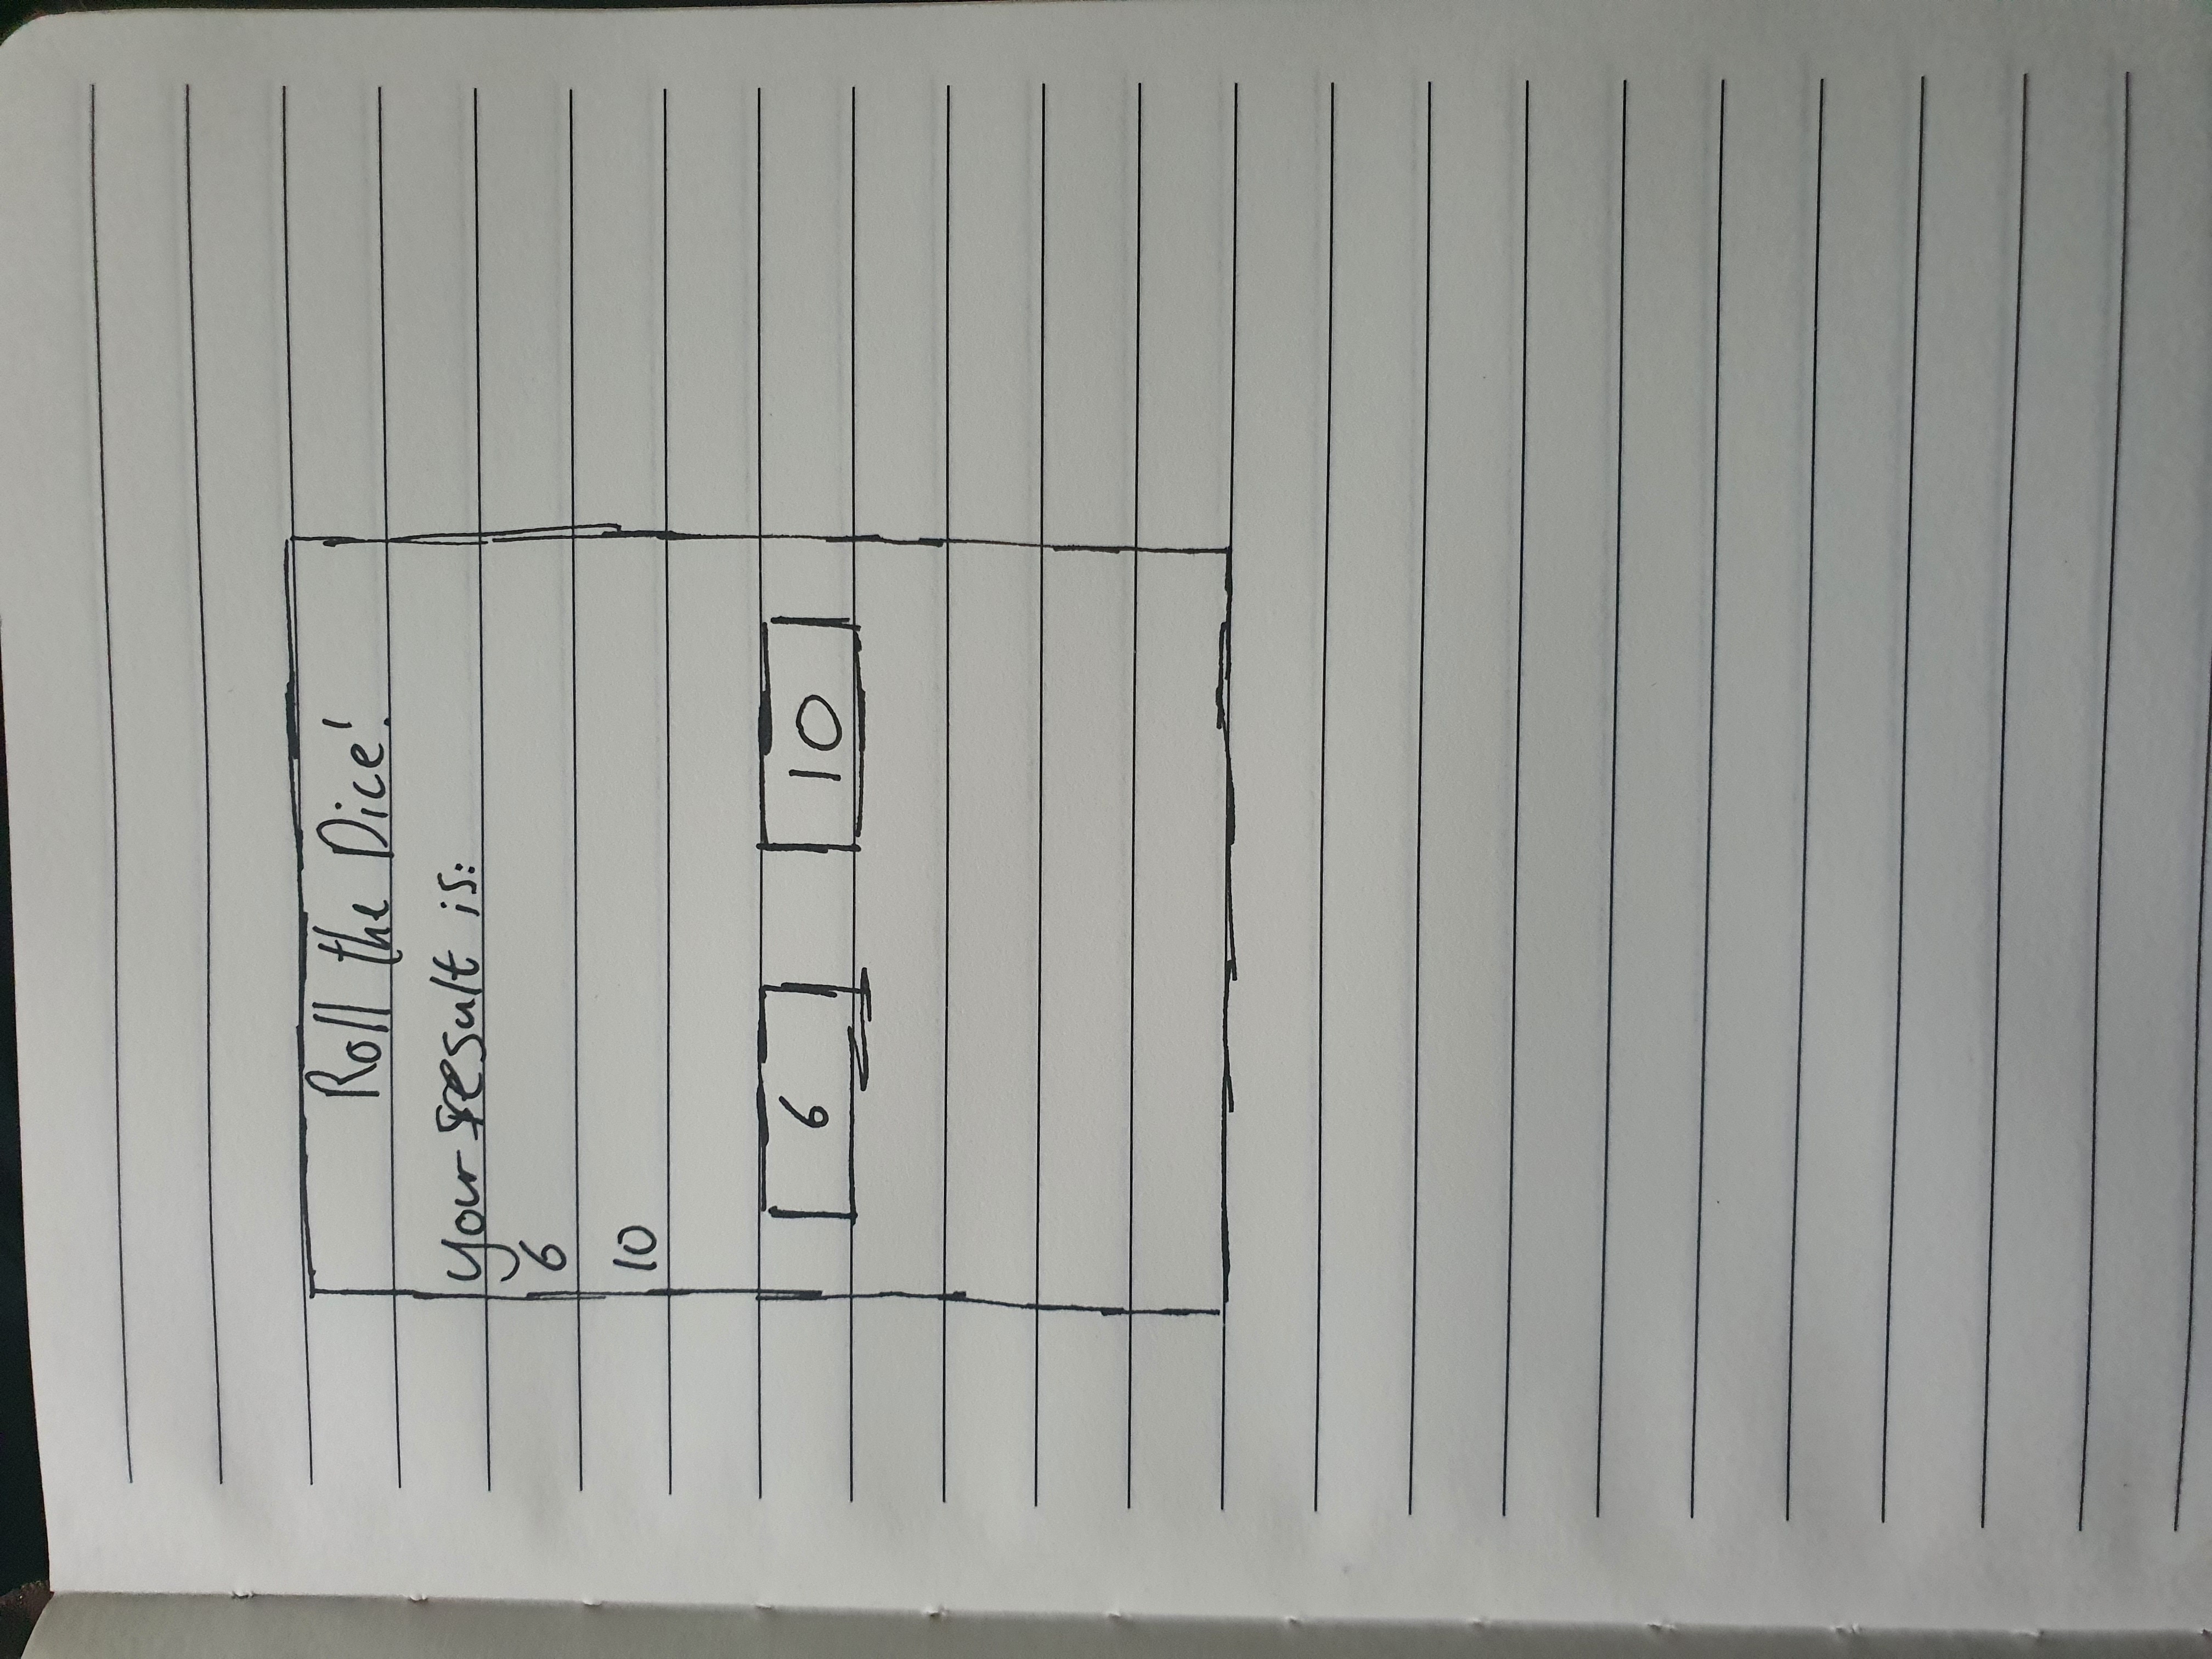 Roll the Dice!
your result is:
6
10
6 10